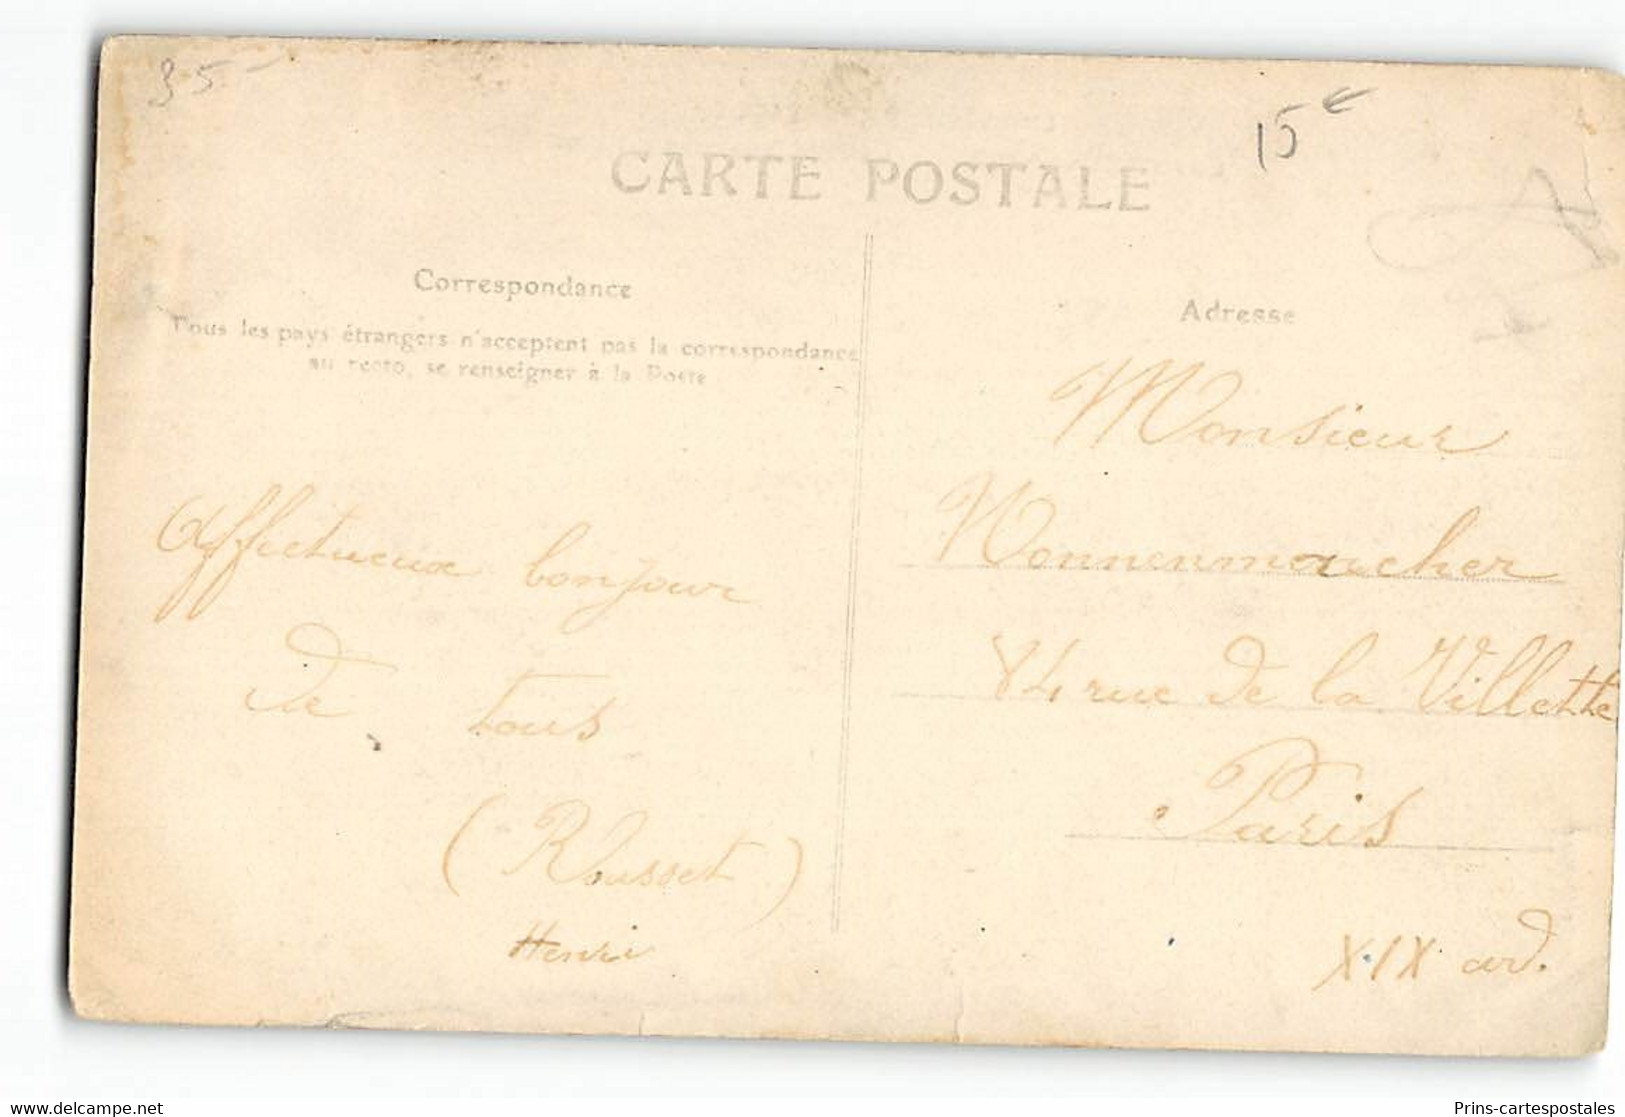 35-
15€
CARTE POSTALE
Correspondance
Tous les pays étrangers n'acceptent pas la correspondance
au recto, se renseigner à la Poste
Adresse
Affectueux bonjour
de tous
(Rousset)
Henri
Monsieur
Nonnenmaucher
84 rue de la Villette
Paris
XIX ard.
www.delcampe.net
Prins-cartespostales